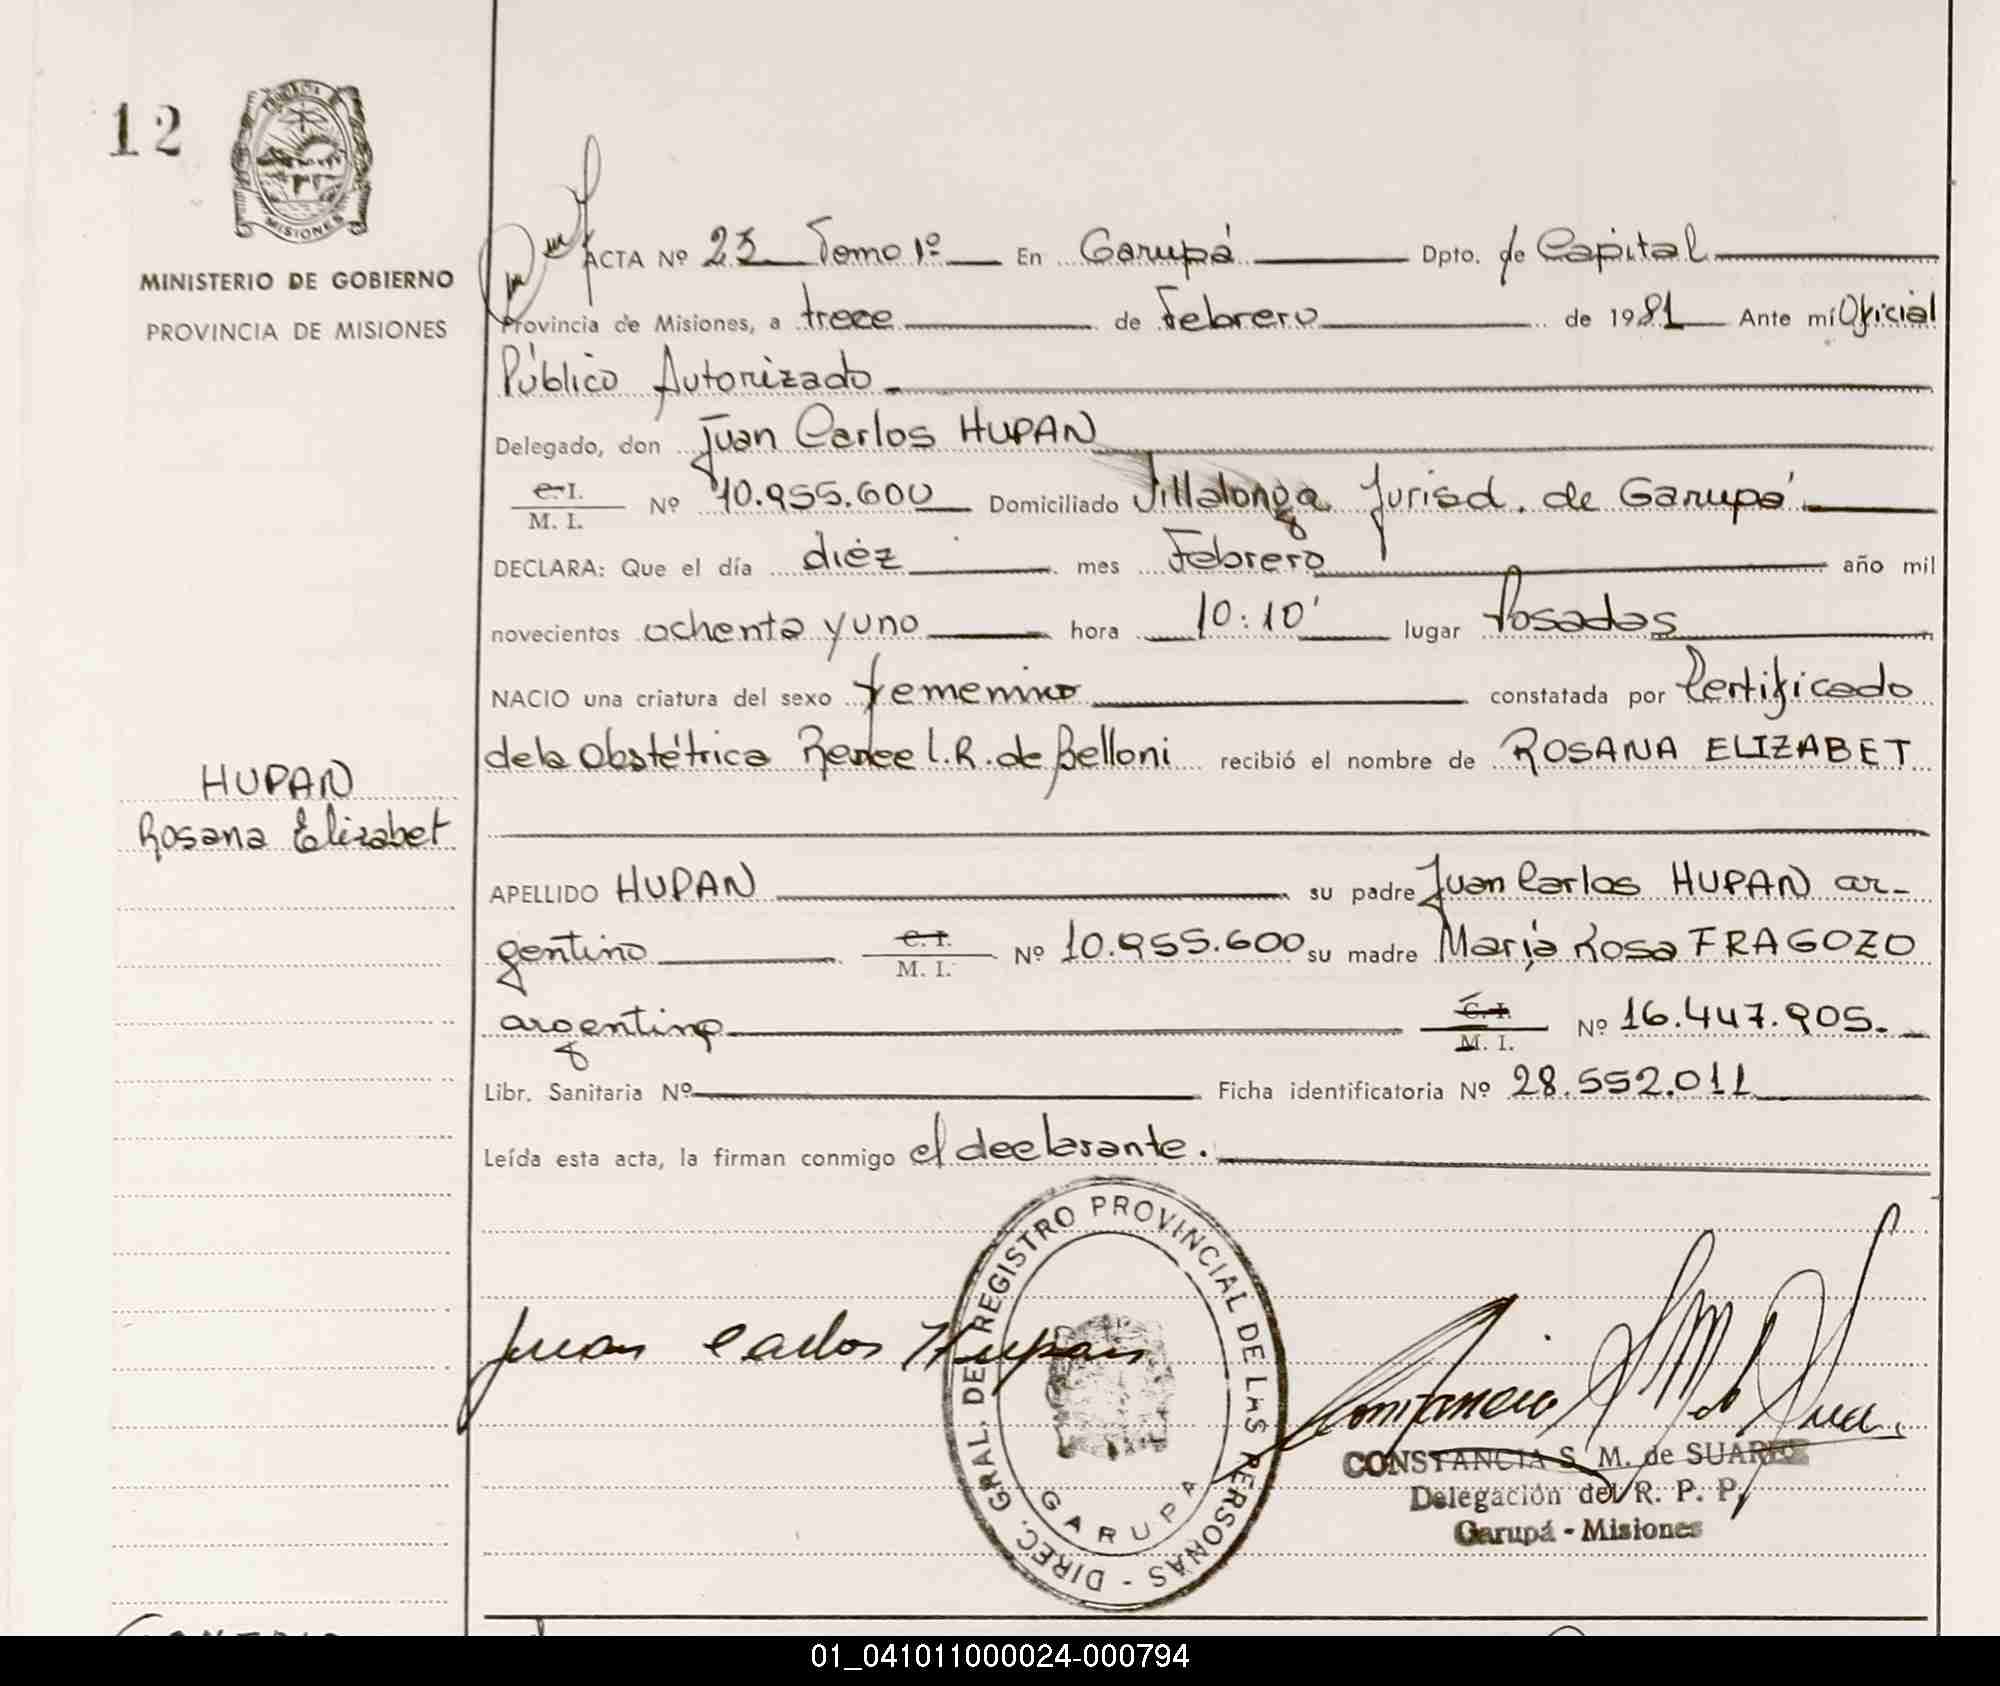 12
PROVINCIA DE
MISIONES
MINISTERIO DE GOBIERNO
PROVINCIA DE MISIONES
ACTA Nº 23 Tomo 1º En Garupá Dpto. de Capital
Provincia de Misiones, a trece de Febrero de 1981 Ante mí Oficial
Público Autorizado
Delegado, don Juan Carlos HUPAN
C. I.
M. I. Nº 10.955.600 Domiciliado Villalonga Jurisd. de Garupá
DECLARA: Que el día diéz mes Febrero año mil
novecientos ochenta y uno hora 10:10' lugar Posadas
NACIO una criatura del sexo femenino constatada por Certificado
de la Obstétrica Renee L.R. de Belloni recibió el nombre de ROSANA ELIZABET
HUPAN
Rosana Elizabet
APELLIDO HUPAN su padre Juan Carlos HUPAN ar-
gentino C. I.
M. I. Nº 10.955.600 su madre María Rosa FRAGOZO
argentina C. I.
M. I. Nº 16.447.905.
Libr. Sanitaria Nº Ficha identificatoria Nº 28.552.011
Leída esta acta, la firman conmigo el declarante.
DIREC. GRAL. DE REGISTRO PROVINCIAL DE LAS PERSONAS -
GARUPA
Juan Carlos Hupan
Constancia S M de Sua.
CONSTANCIA S. M. de SUAREZ
Delegación del R. P. P.
Garupá - Misiones
01_041011000024-000794